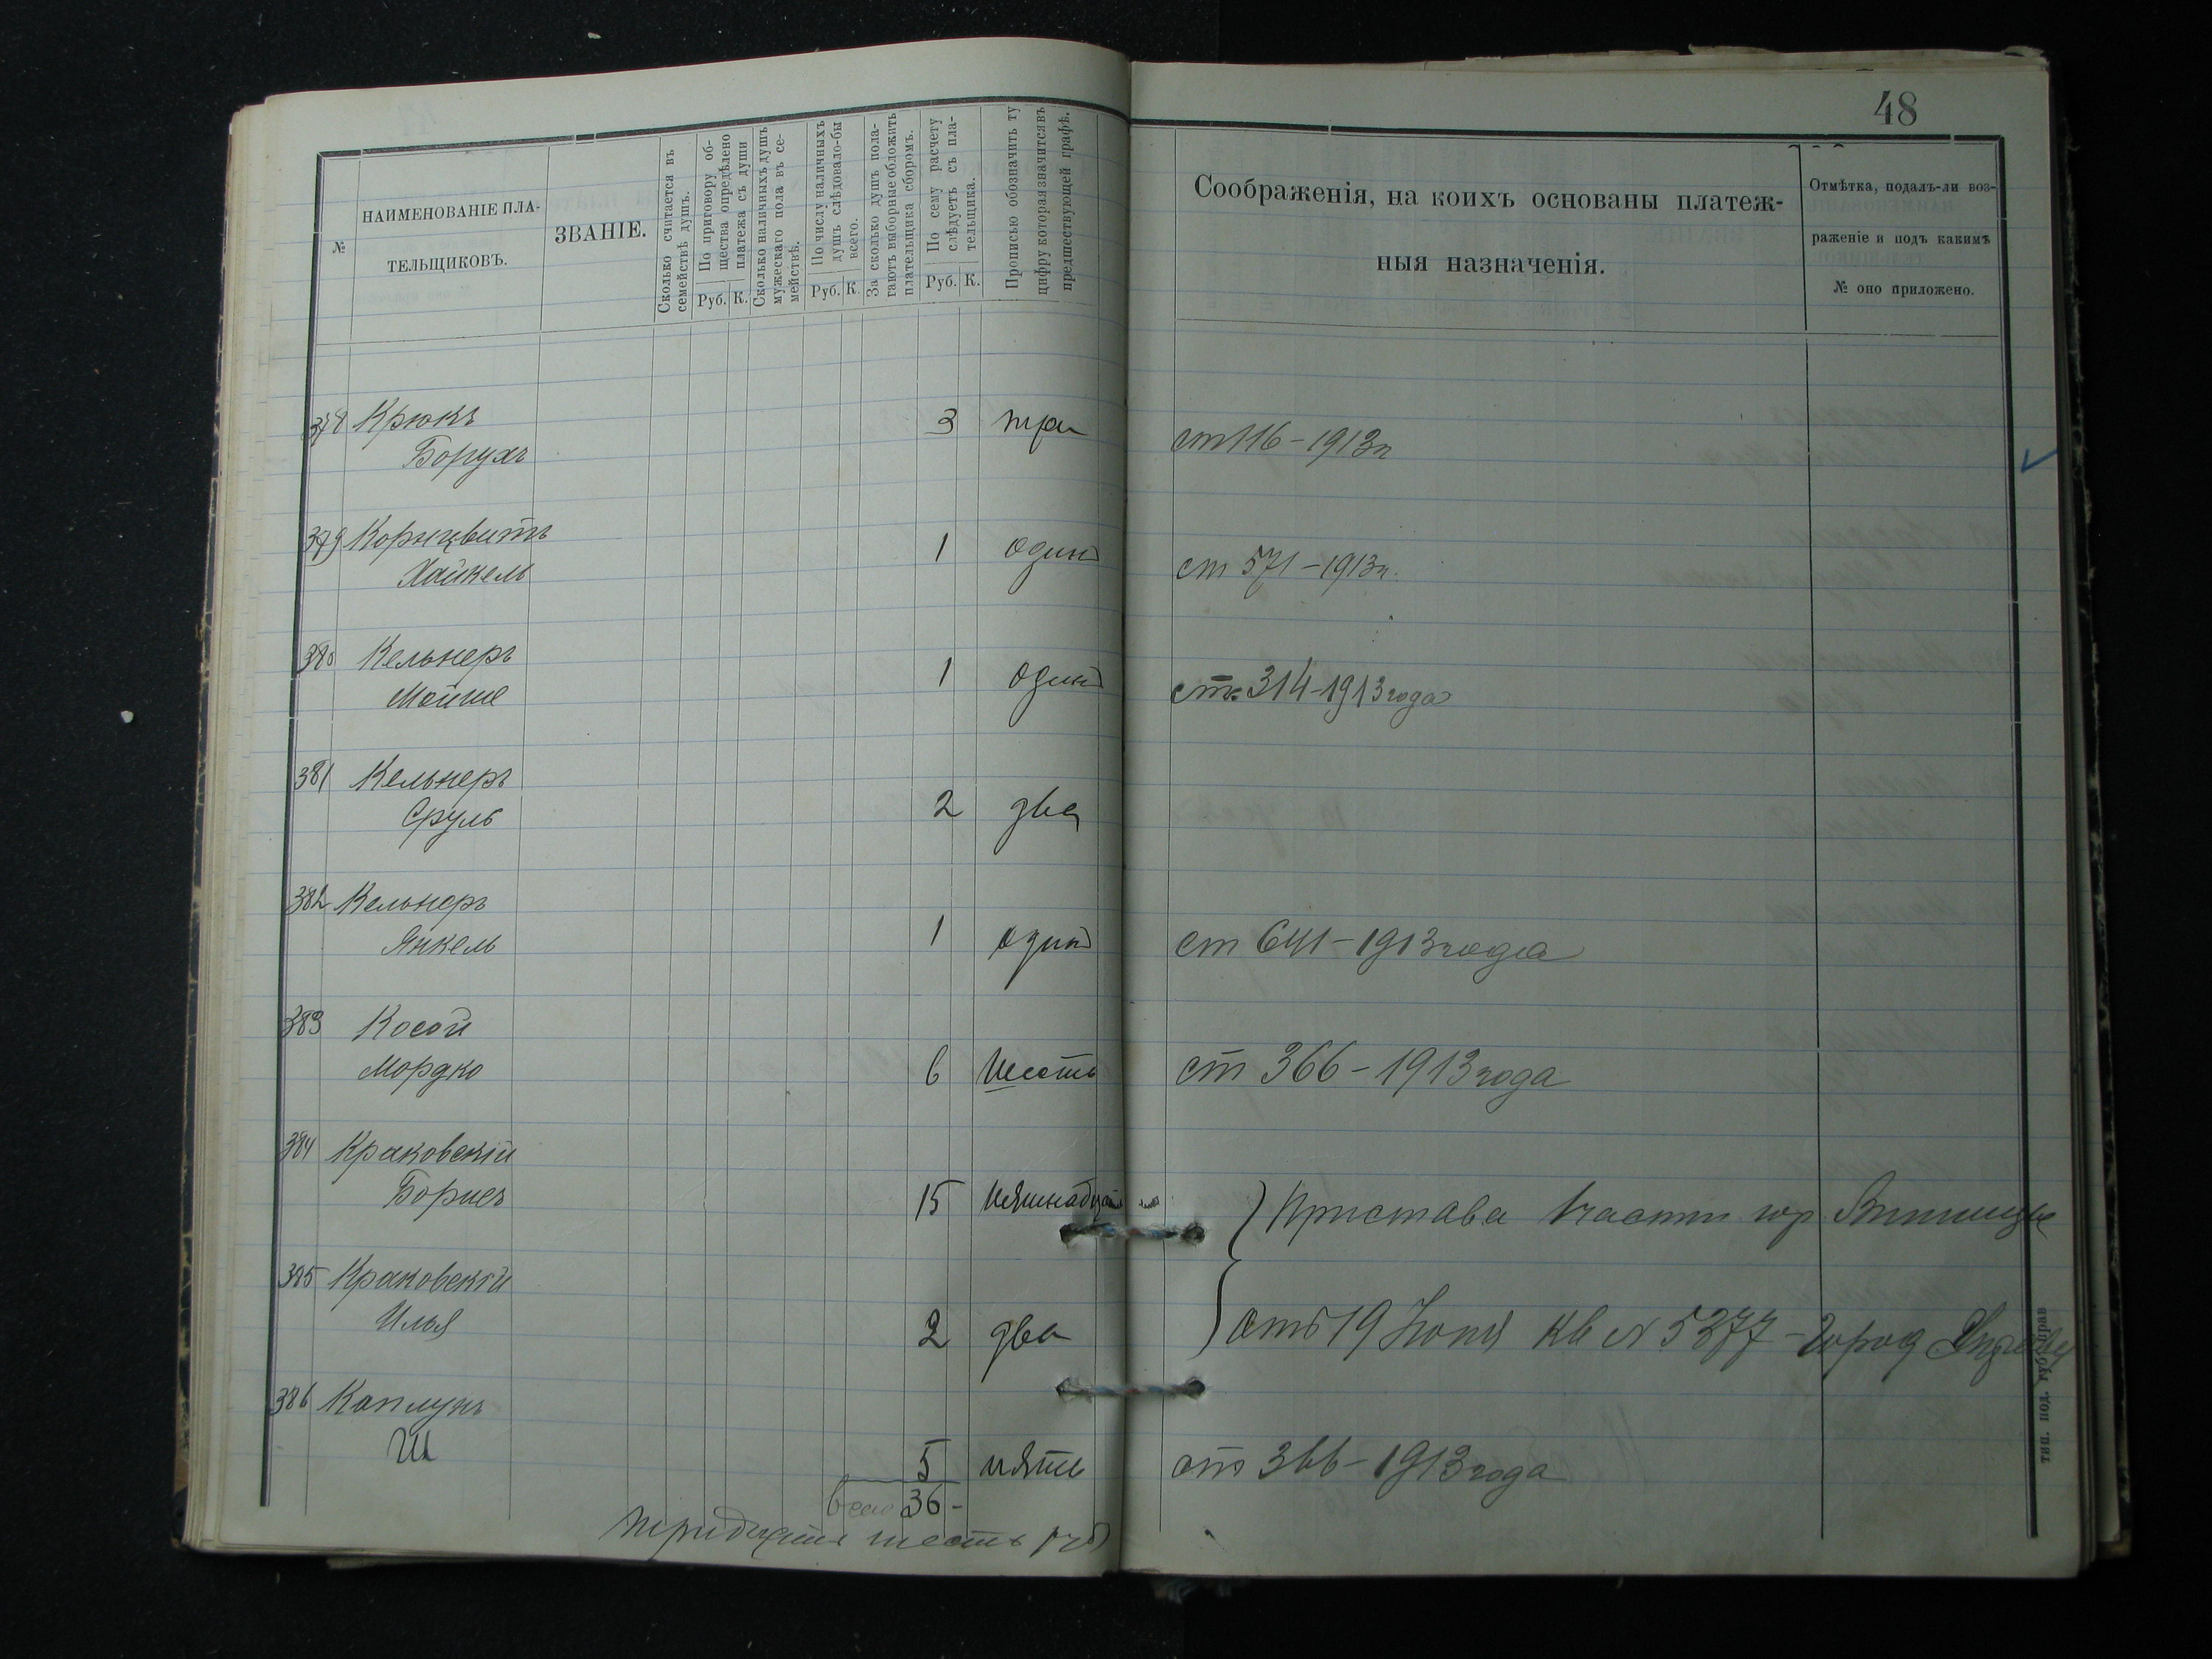 48
№
НАИМЕНОВАНІЕ ПЛА-
ТЕЛЬЩИКОВЪ.
ЗВАНІЕ.
Сколько считается въ
семействѣ душъ.
По приговору об-
щества опредѣлено
платежа съ души
Руб. К.
Сколько наличныхъ душъ
мужескаго пола въ се-
мействѣ.
По числу наличныхъ
душъ слѣдовало-бы
всего.
Руб. К.
За сколько душъ пола-
гаютъ выборные обложить
плательщика сборомъ.
По сему расчету
слѣдуетъ съ пла-
тельщика.
Руб. К.
Прописью обозначить ту
цифру которая значится въ
предшествующей графѣ.
Соображенія, на коихъ основаны платеж-
ныя назначенія.
Отмѣтка, подалъ-ли воз-
раженіе и подъ какимъ
№ оно приложено.
378 Крюкъ
Борухъ 3 три ст 116-1913г
379 Корнцвитъ
Хайкель 1 один ст 571-1913г.
380 Кельнеръ
Мойше 1 один ст. 314-1913 года
381 Кельнеръ
Сруль 2 два
382 Кельнеръ
Янкель 1 один ст 641-1913 года
383 Косой
Мордко 6 шесть ст 366-1913 года
384 Краковскій
Борисъ 15 пятнадцать Пристава 1 части гор Винницы
385 Краковскій
Илья 2 два отъ 19 Іюня кв № 5377 - Город
386 Каплунъ
Ш 5 пять ст 366-1913 года
всего 36-
тридцать шесть руб
тип. под. губ. прав